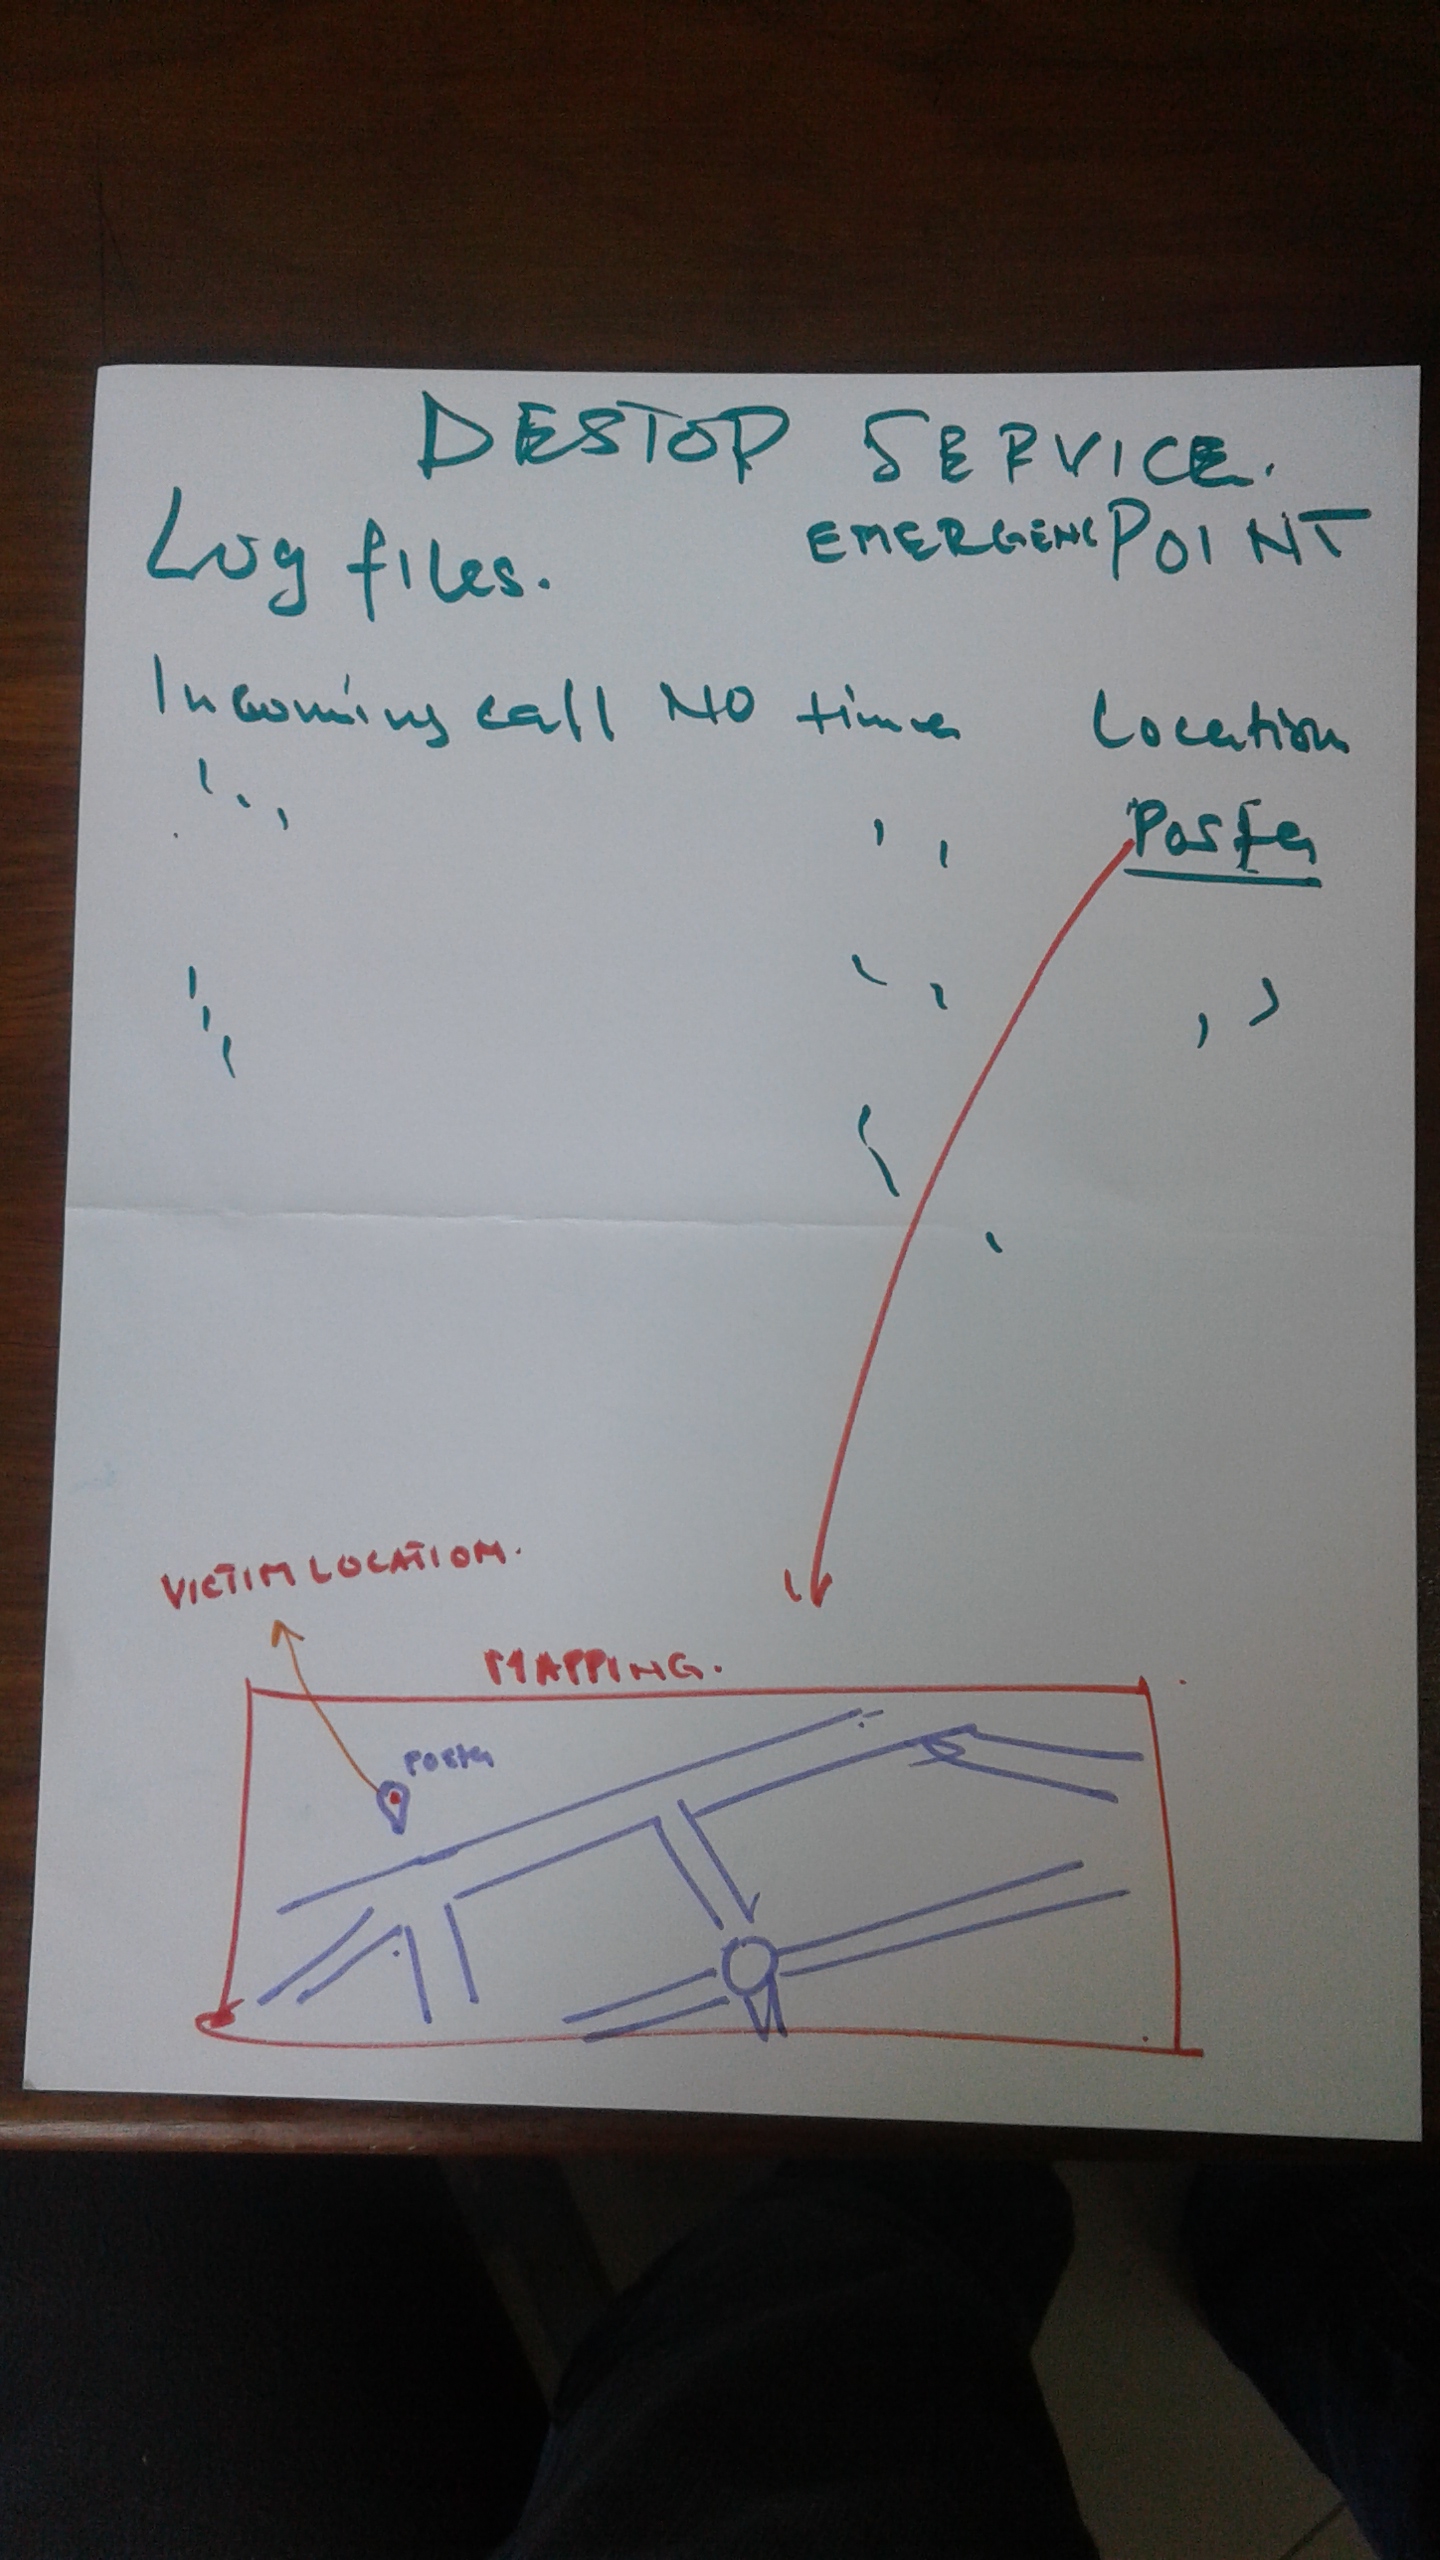 DESTOP SERVICE.
Log files.
EMERGENC POINT
Incoming call NO time Location
Posta
VICTIM LOCATION.
MAPPING.
Posta